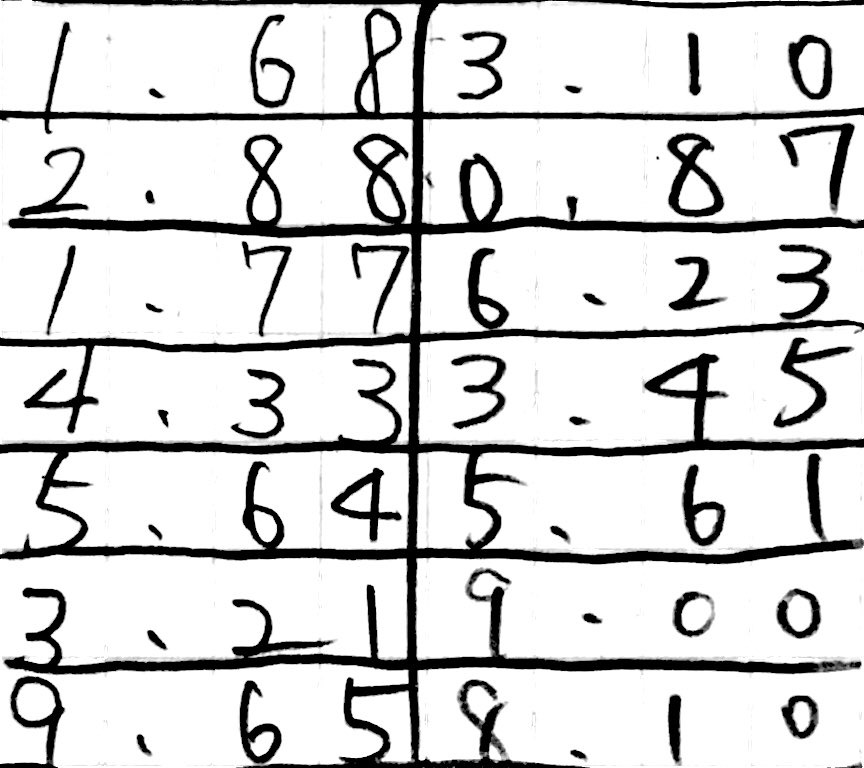 1.68 3.10
2.88 0.87
1.77 6.23
4.33 3.45
5.64 5.61
3.21 9.00
9.65 8.10